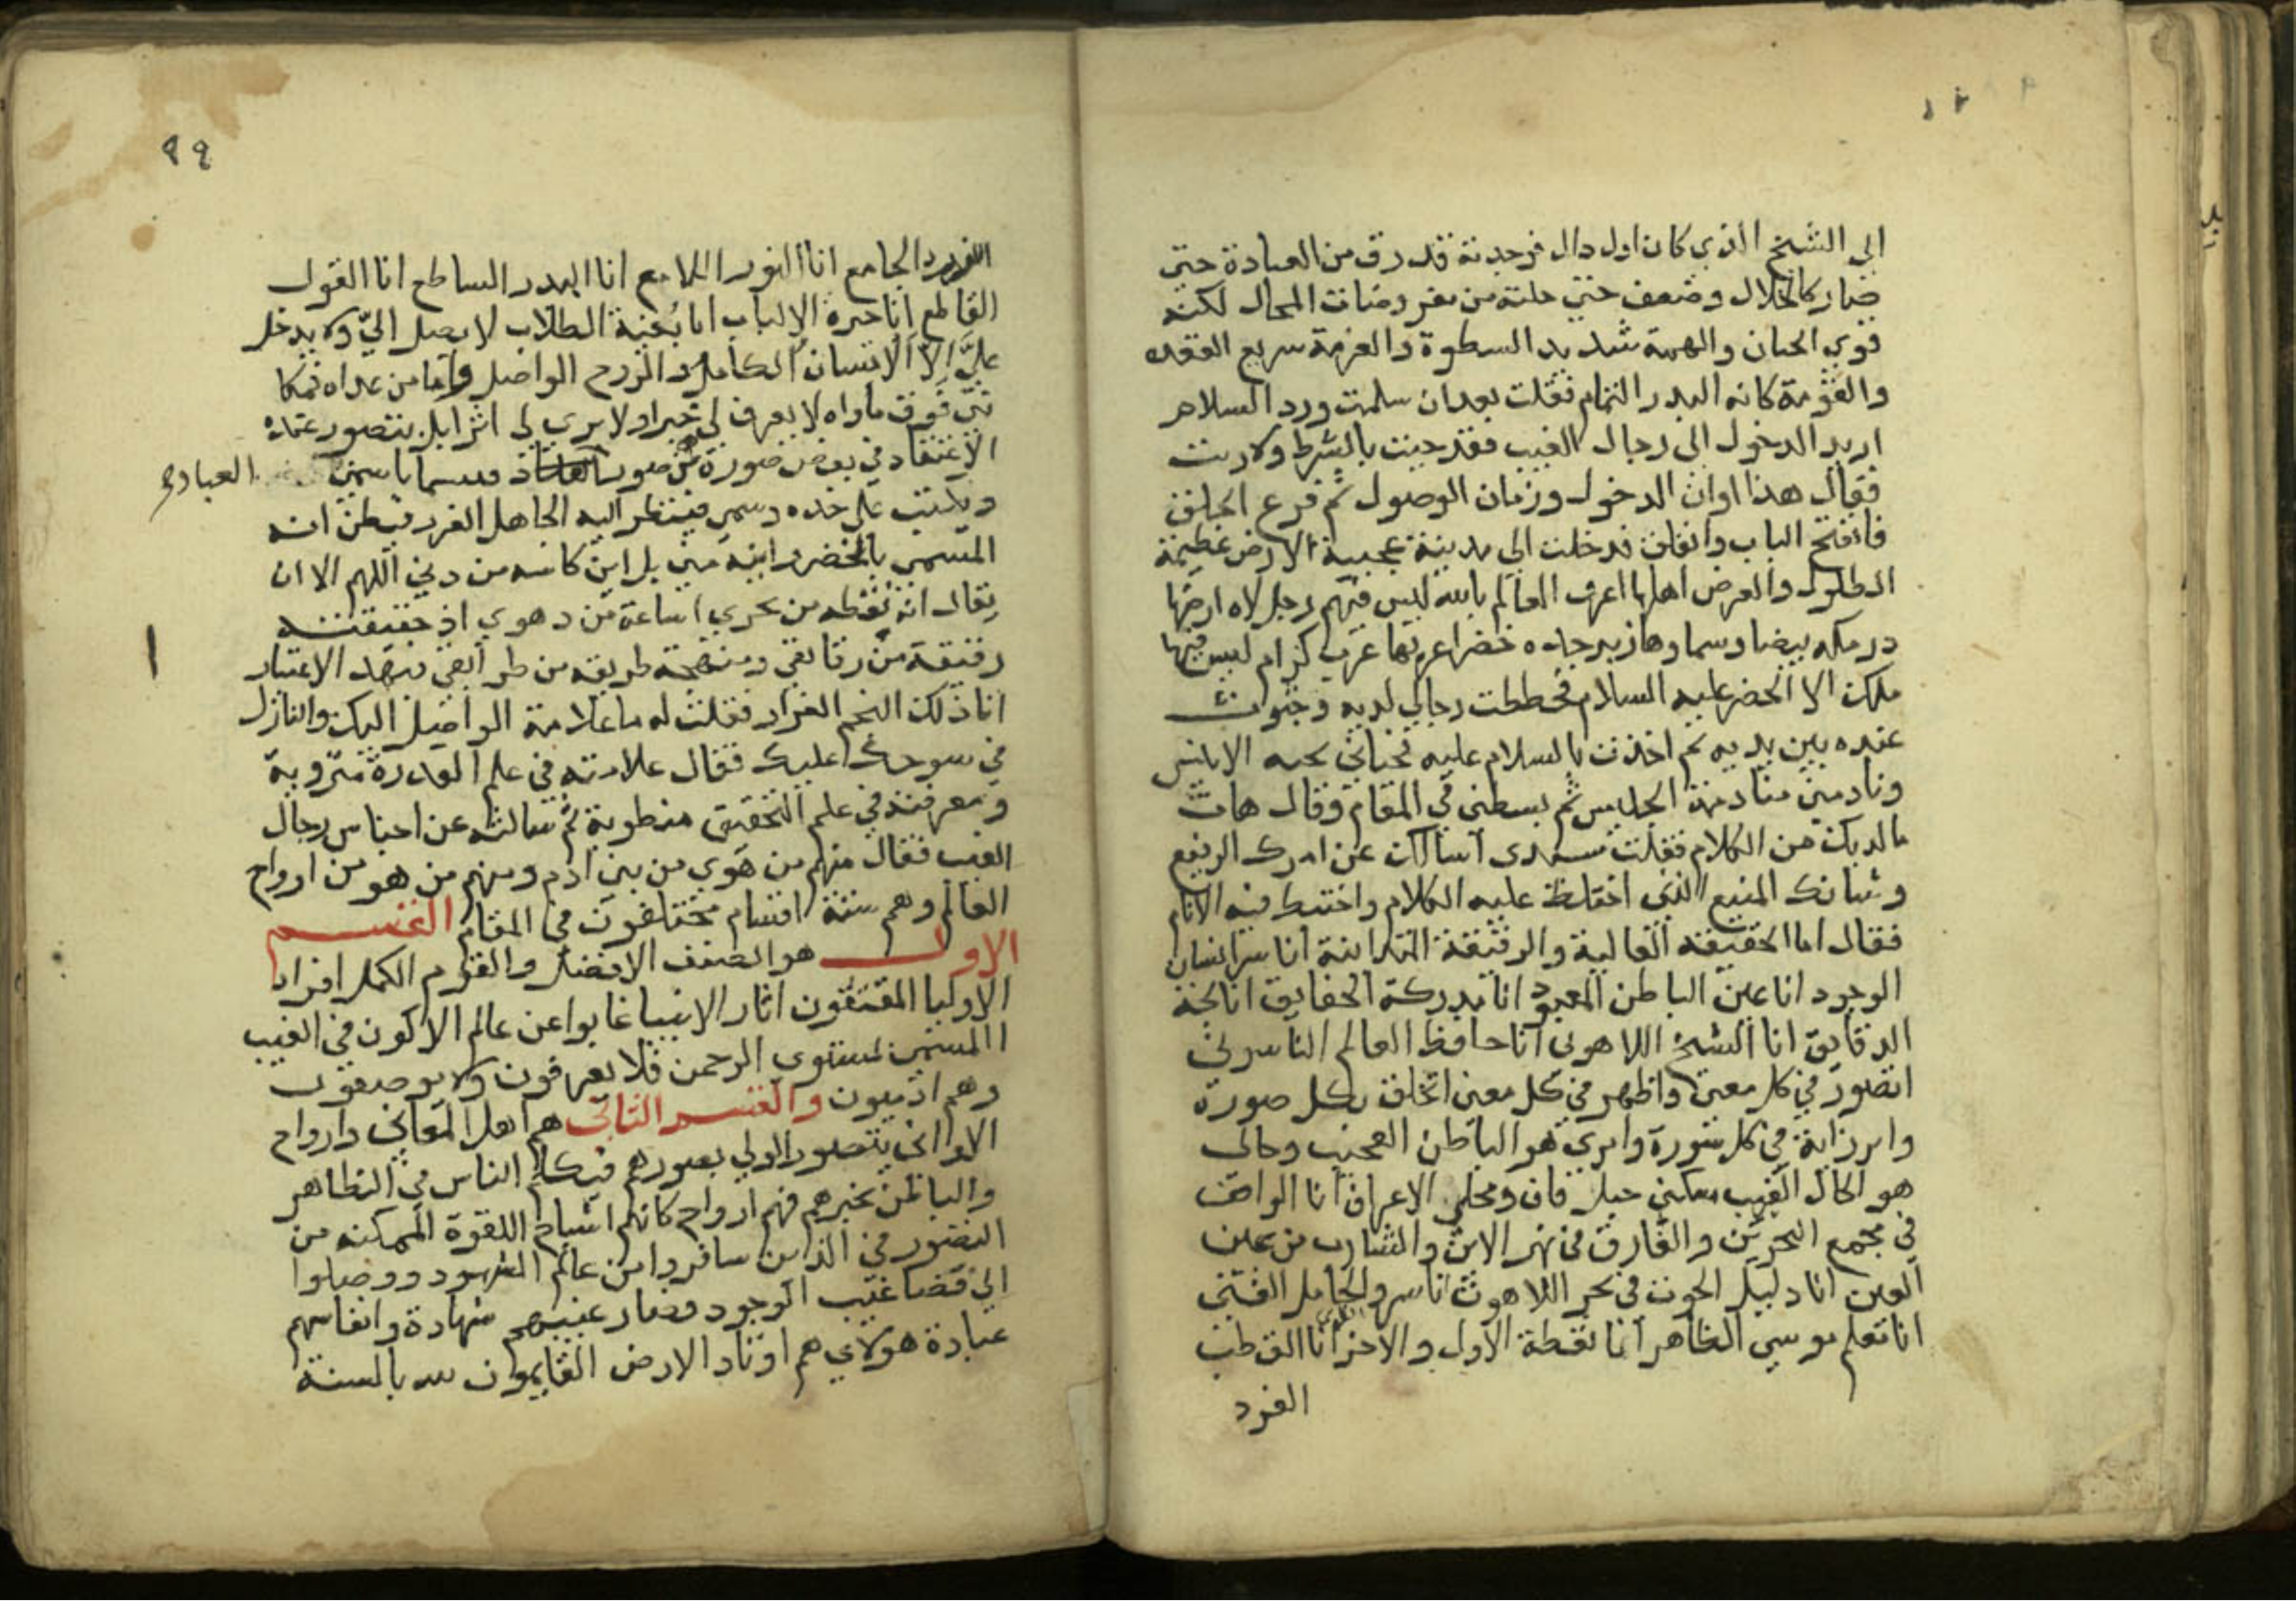 الى الشيخ الذي كان اول دال فوجدته قد رق من العبادة حتى
صار كالخلال وضعف حتى خلته من مفروضات المحال لكنه
قوي الجنان والهمة شديد السطوة والعزمة سريع القعدة
والقومة كانه البدر التمام فقلت بعد ان سلمت ورد السلام
اريد الدخول الى رجال الغيب فقد جيت بالشرط ولا ريب
فقال هذا اوان الدخول وزمان الوصول ثم قرع الحلق
فانفتح الباب وانغلق فدخلت الى مدينة عجيبة الارض عظيمة
الطول والعرض اهلها اعرف العالم بالله ليس فيهم رجل لاه ارضها
درمكه بيضا وسماوها زبرجده خضرا عربها عرب كرام ليس فيها
ملك الا الخضر عليه السلام فحططت رحالي لديه وجثوت
عنده بين يديه ثم اخذت بالسلام عليه فحياني تحية الانيس
ونادمني منادمة الجليس ثم بسطني في المقام وقال هات
مالديك من الكلام فقلت سيدى اسالك عن امرك الرفيع
وشانك المنيع الذي اختلط عليه الكلام واختبط فيه الانام
فقال اما الحقيقة العالية والرقيقة المتدانية انا سر انسان
الوجود انا عين الباطن المعبود انا مدركة الحقايق انا لجة
الدقايق انا الشيخ اللاهوتى انا حافظ العالم الناسوتي
اتصور في كل معنى واظهر في كل معنى اتخلق بكل صورة
وابرز اية في كل سورة وامري هو الباطن العجيب وحالى
هو الحال الغريب مسكنى جبل قاف ومحلي الاعراف انا الواقف
في مجمع البحرين والغارق في نهر الاين والشارب من عين
العين انا دليل الحوت في بحر اللاهوت انا سر والحامل الفتى
انا معلم موسى الظاهر انا نقطة الاول والاخر انا القطب
الفرد
٩٩
الفرد الجامع انا النور اللامع انا البدر الساطع انا القول
القاطع انا حيرة الالباب انا بغية الطلاب لا يصل الي ولا يدخل
علي الا الانسان الكامل والروح الواصل واما من عداه فمكا
نتي فوق ماواه لا يعرف لي خبرا ولا يرى لي اثرا بل يتصور عنده
الاعتقاد في بعض صورة من صور العباد فيسما باسمي
العباده
ويكتب على خده وسمي فينظر اليه الجاهل الغر فيظن انه
المسمى بالخضر واين هو مني بل اين كاسه من دني اللهم الا ان
يقال انه نقطه من بحري او ساعة من دهري اذ حقيقته
رقيقة من رقايقي ومنهجه طريقه من طرايقي فبهذ الاعتبار
انا ذلك النجم الغرار فقلت له ما علامة الواصل اليك والنازل
في سوحك عليك فقال علامته في علم القدرة منزوية
ومعرفته في علم التحقيق منطوية ثم سالته عن اجناس رجال
الغيب فقال منهم من هو من بني ادم ومنهم من هو من ارواح
العالم وهم ستة اقسام مختلفون في المقام القسم
الاول هو الصنف الافضل والقوم الكمل افراد
الاوليا المقتفون اثار الانبيا غابوا عن عالم الاكون في الغيب
المسمى لمستوى الرحمن فلا يعرفون ولا يوصفون
وهم ادميون والقسم الثاني هم اهل المعاني وارواح
الاواني يتصور الولي بصورهم فيكلم الناس في الظاهر
والباطن بخبرهم فهم ارواح كانهم اشباح للقوة الممكنه من
التصور في الذاين سافروا من عالم الشهود ووصلوا
الى فضا غيب الوجود فصار غيبهم شهادة وانفاسهم
عبادة هولاي هم اوتاد الارض القايمون لله بالسنة